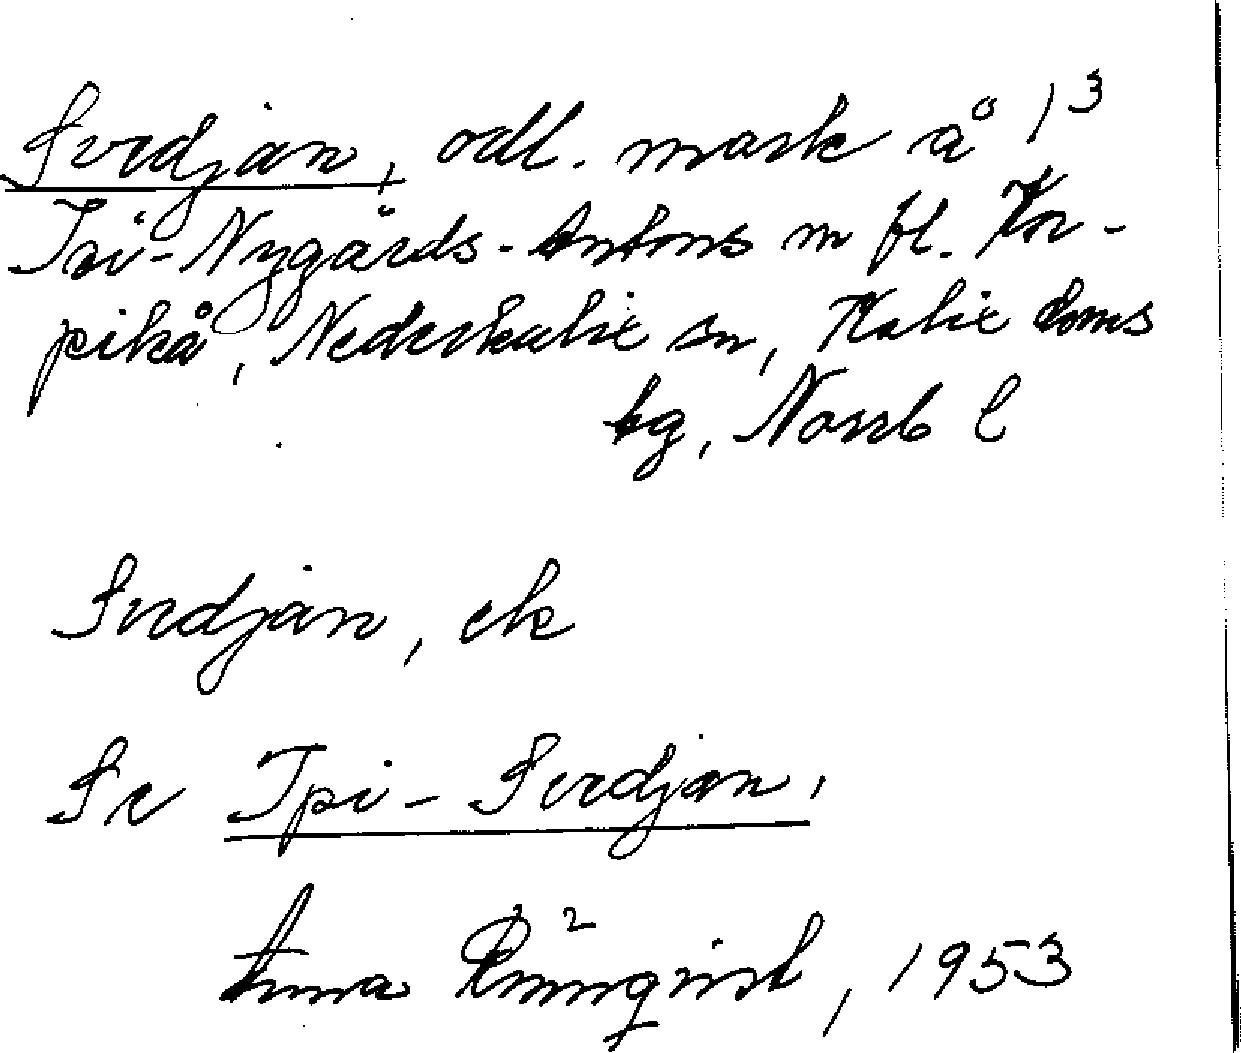 Svedjan, odl. mark å 1³
Ipi-Nygårds-Antons m fl. Kor-
pikå, Nederkalix sn, Kalix doms
bg, Norrb l
Svedjan, ek
Se Ipi-Svedjan,
Anna Rönnqvist, 1953